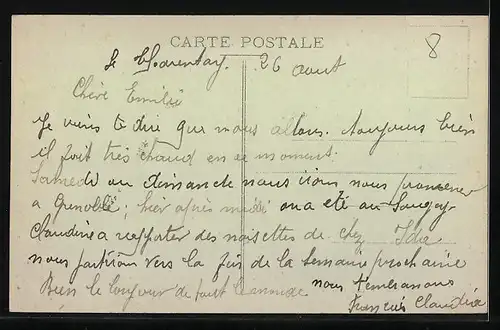 CARTE POSTALE
8
26 aout
Chère Emilie
Je viens te dire que nous allons toujours bien
il fait très chaud en ce moment.
Samedi ou dimanche nous irons nous promener
a Grenoble. hier après midi on a été au
Claudine a rapporter des noisettes de chez Ida
nous partirons vers la fin de la semaine prochaine
Bien le bonjour de tout le monde nous t'embrassons
François Claudine